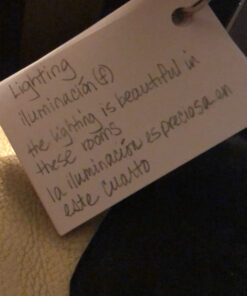 Lighting
iluminación (f)
the lighting is beautiful in
these rooms
la iluminación es preciosa an
este cuarto